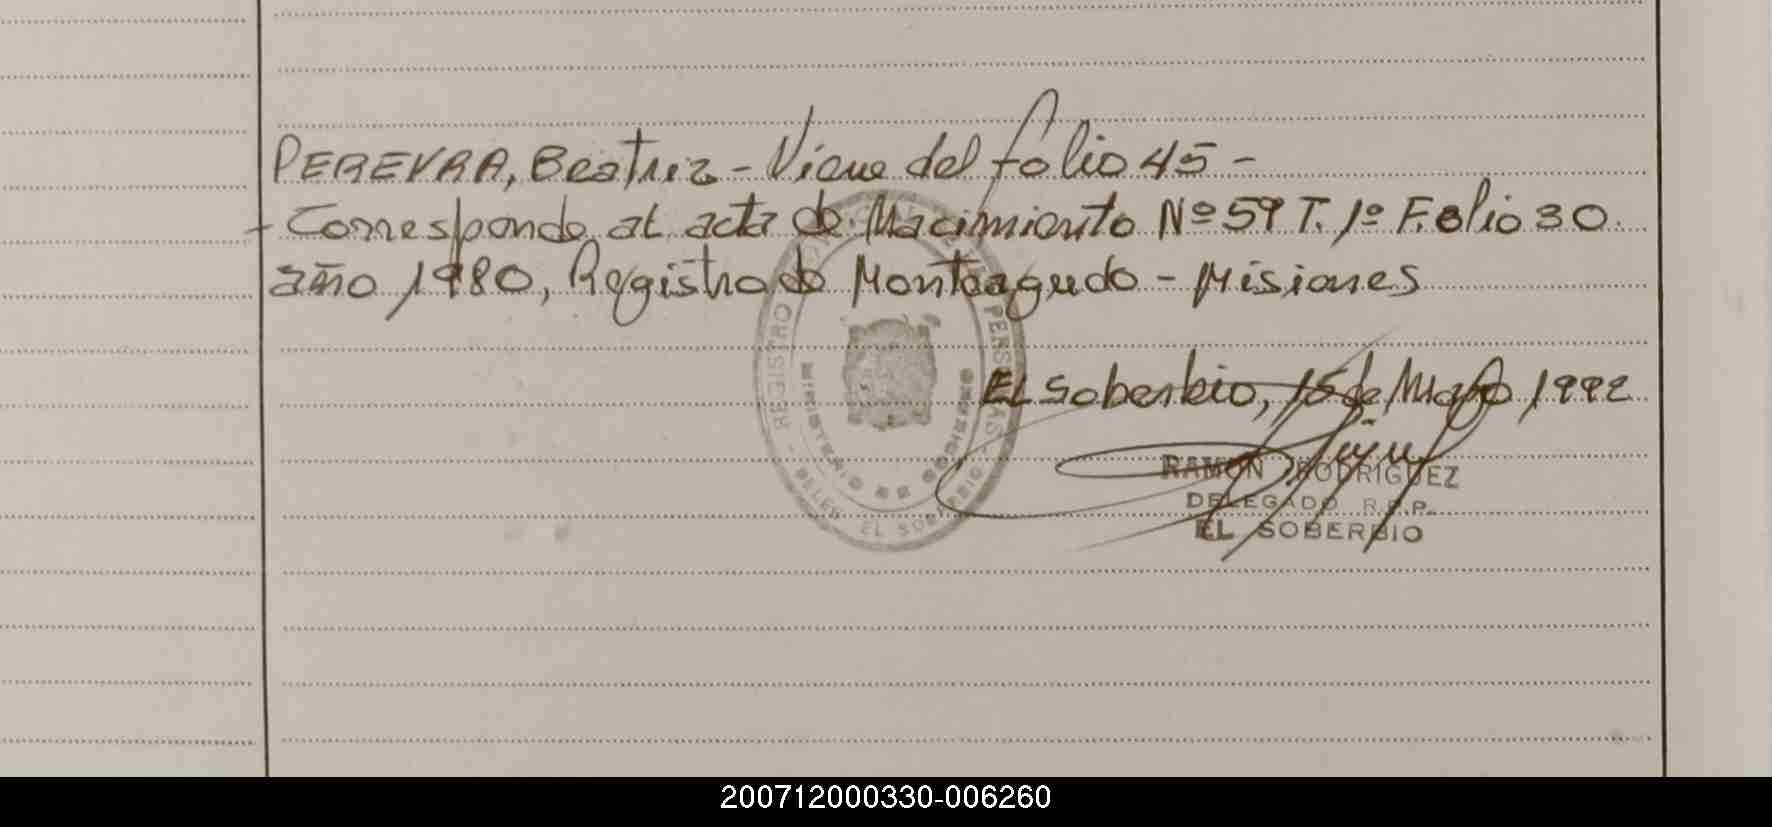 PEREYRA, Beatriz - Viene del folio 45 -
- Corresponde al acta de Nacimiento Nº 59 T. 1º Folio 30
año 1980, Registro de Monteagudo - Misiones
El Soberbio, 15 de Mayo 1992
RAMON RODRIGUEZ
DELEGADO R.P.P.
EL SOBERBIO
REGISTRO PERSONAS
MINISTERIO DE GOBIERNO
- DELEG. EL SOBERBIO -
200712000330-006260